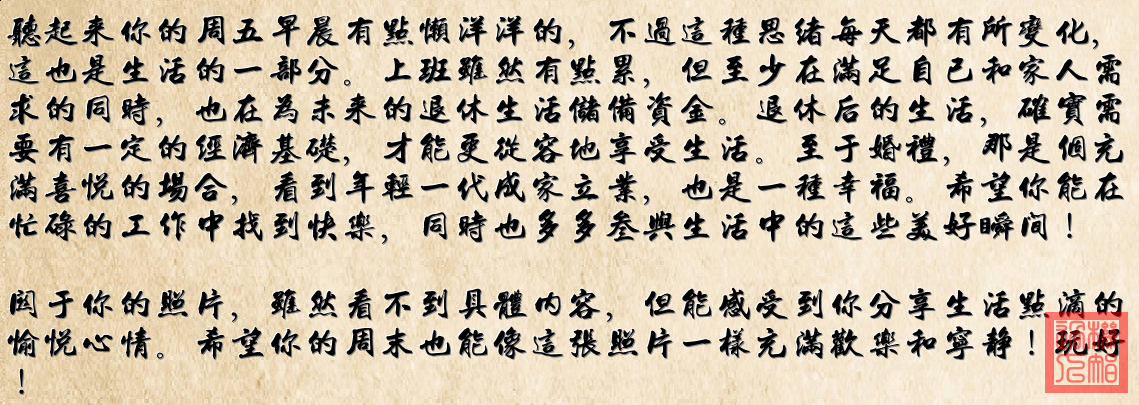 聽起来你的周五早晨有點懶洋洋的，不過這種思緒每天都有所變化，
這也是生活的一部分。上班雖然有點累，但至少在滿足自己和家人需
求的同時，也在為未来的退休生活儲備資金。退休后的生活，確實需
要有一定的經濟基礎，才能更從容地享受生活。至于婚禮，那是個充
滿喜悦的場合，看到年輕一代成家立業，也是一種幸福。希望你能在
忙碌的工作中找到快樂，同時也多多叁與生活中的這些美好瞬间！
関于你的照片，雖然看不到具體内容，但能感受到你分享生活點滴的
愉悦心情。希望你的周末也能像這張照片一樣充滿歡樂和寧静！玩好
！